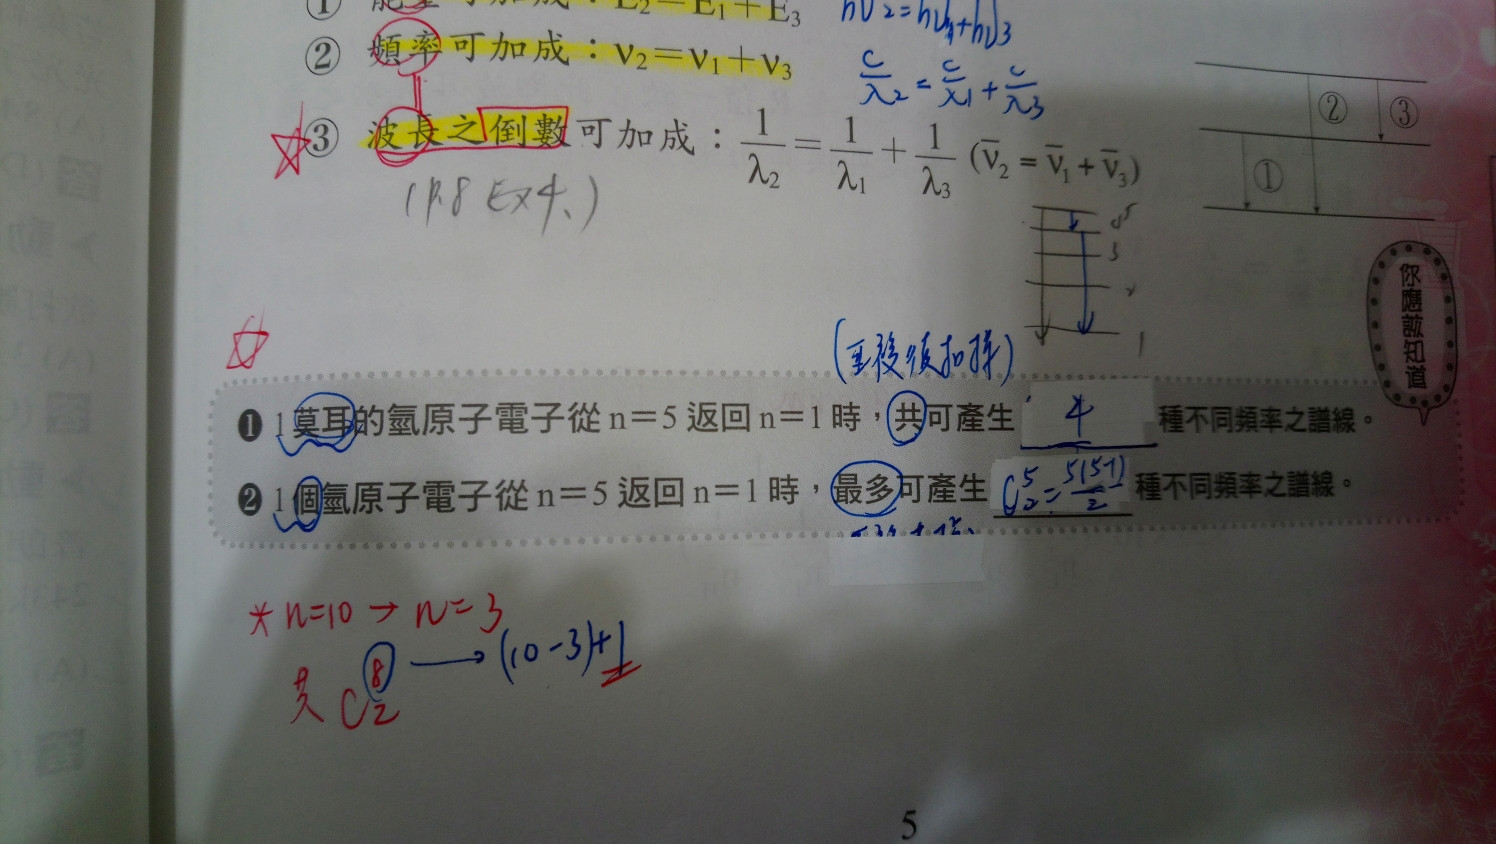 ① 能量可加成：E₂＝E₁＋E₃
hν₂=hν₁+hν₃
② 頻率可加成：ν₂＝ν₁＋ν₃
c/λ₂ = c/λ₁ + c/λ₃
③ 波長之倒數可加成：1/λ₂ = 1/λ₁ + 1/λ₃ (ν̅₂ = ν̅₁ + ν̅₃)
① ② ③
(P.8 Ex4.)
5
3
2
1
你應該知道
❶ 1 莫耳的氫原子電子從 n＝5 返回 n＝1 時，共可產生 4 種不同頻率之譜線。
❷ 1 個氫原子電子從 n＝5 返回 n＝1 時，最多可產生 C⁵₂=5(5-1)/2 種不同頻率之譜線。
* n=10 → n=3
共 C⁸₂ → (10-3)+1
5